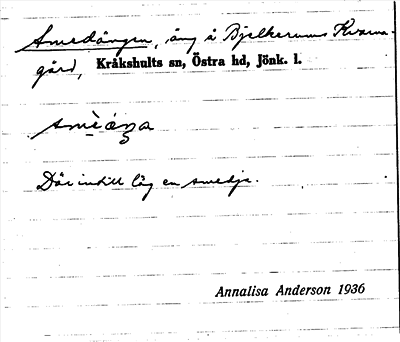 Smedängen, äng å Bjelkerums Kvarna-
gård, Kråkshults sn, Östra hd, Jönk. l.
smèáŋa
Där intill låg en smedja.
Annalisa Anderson 1936